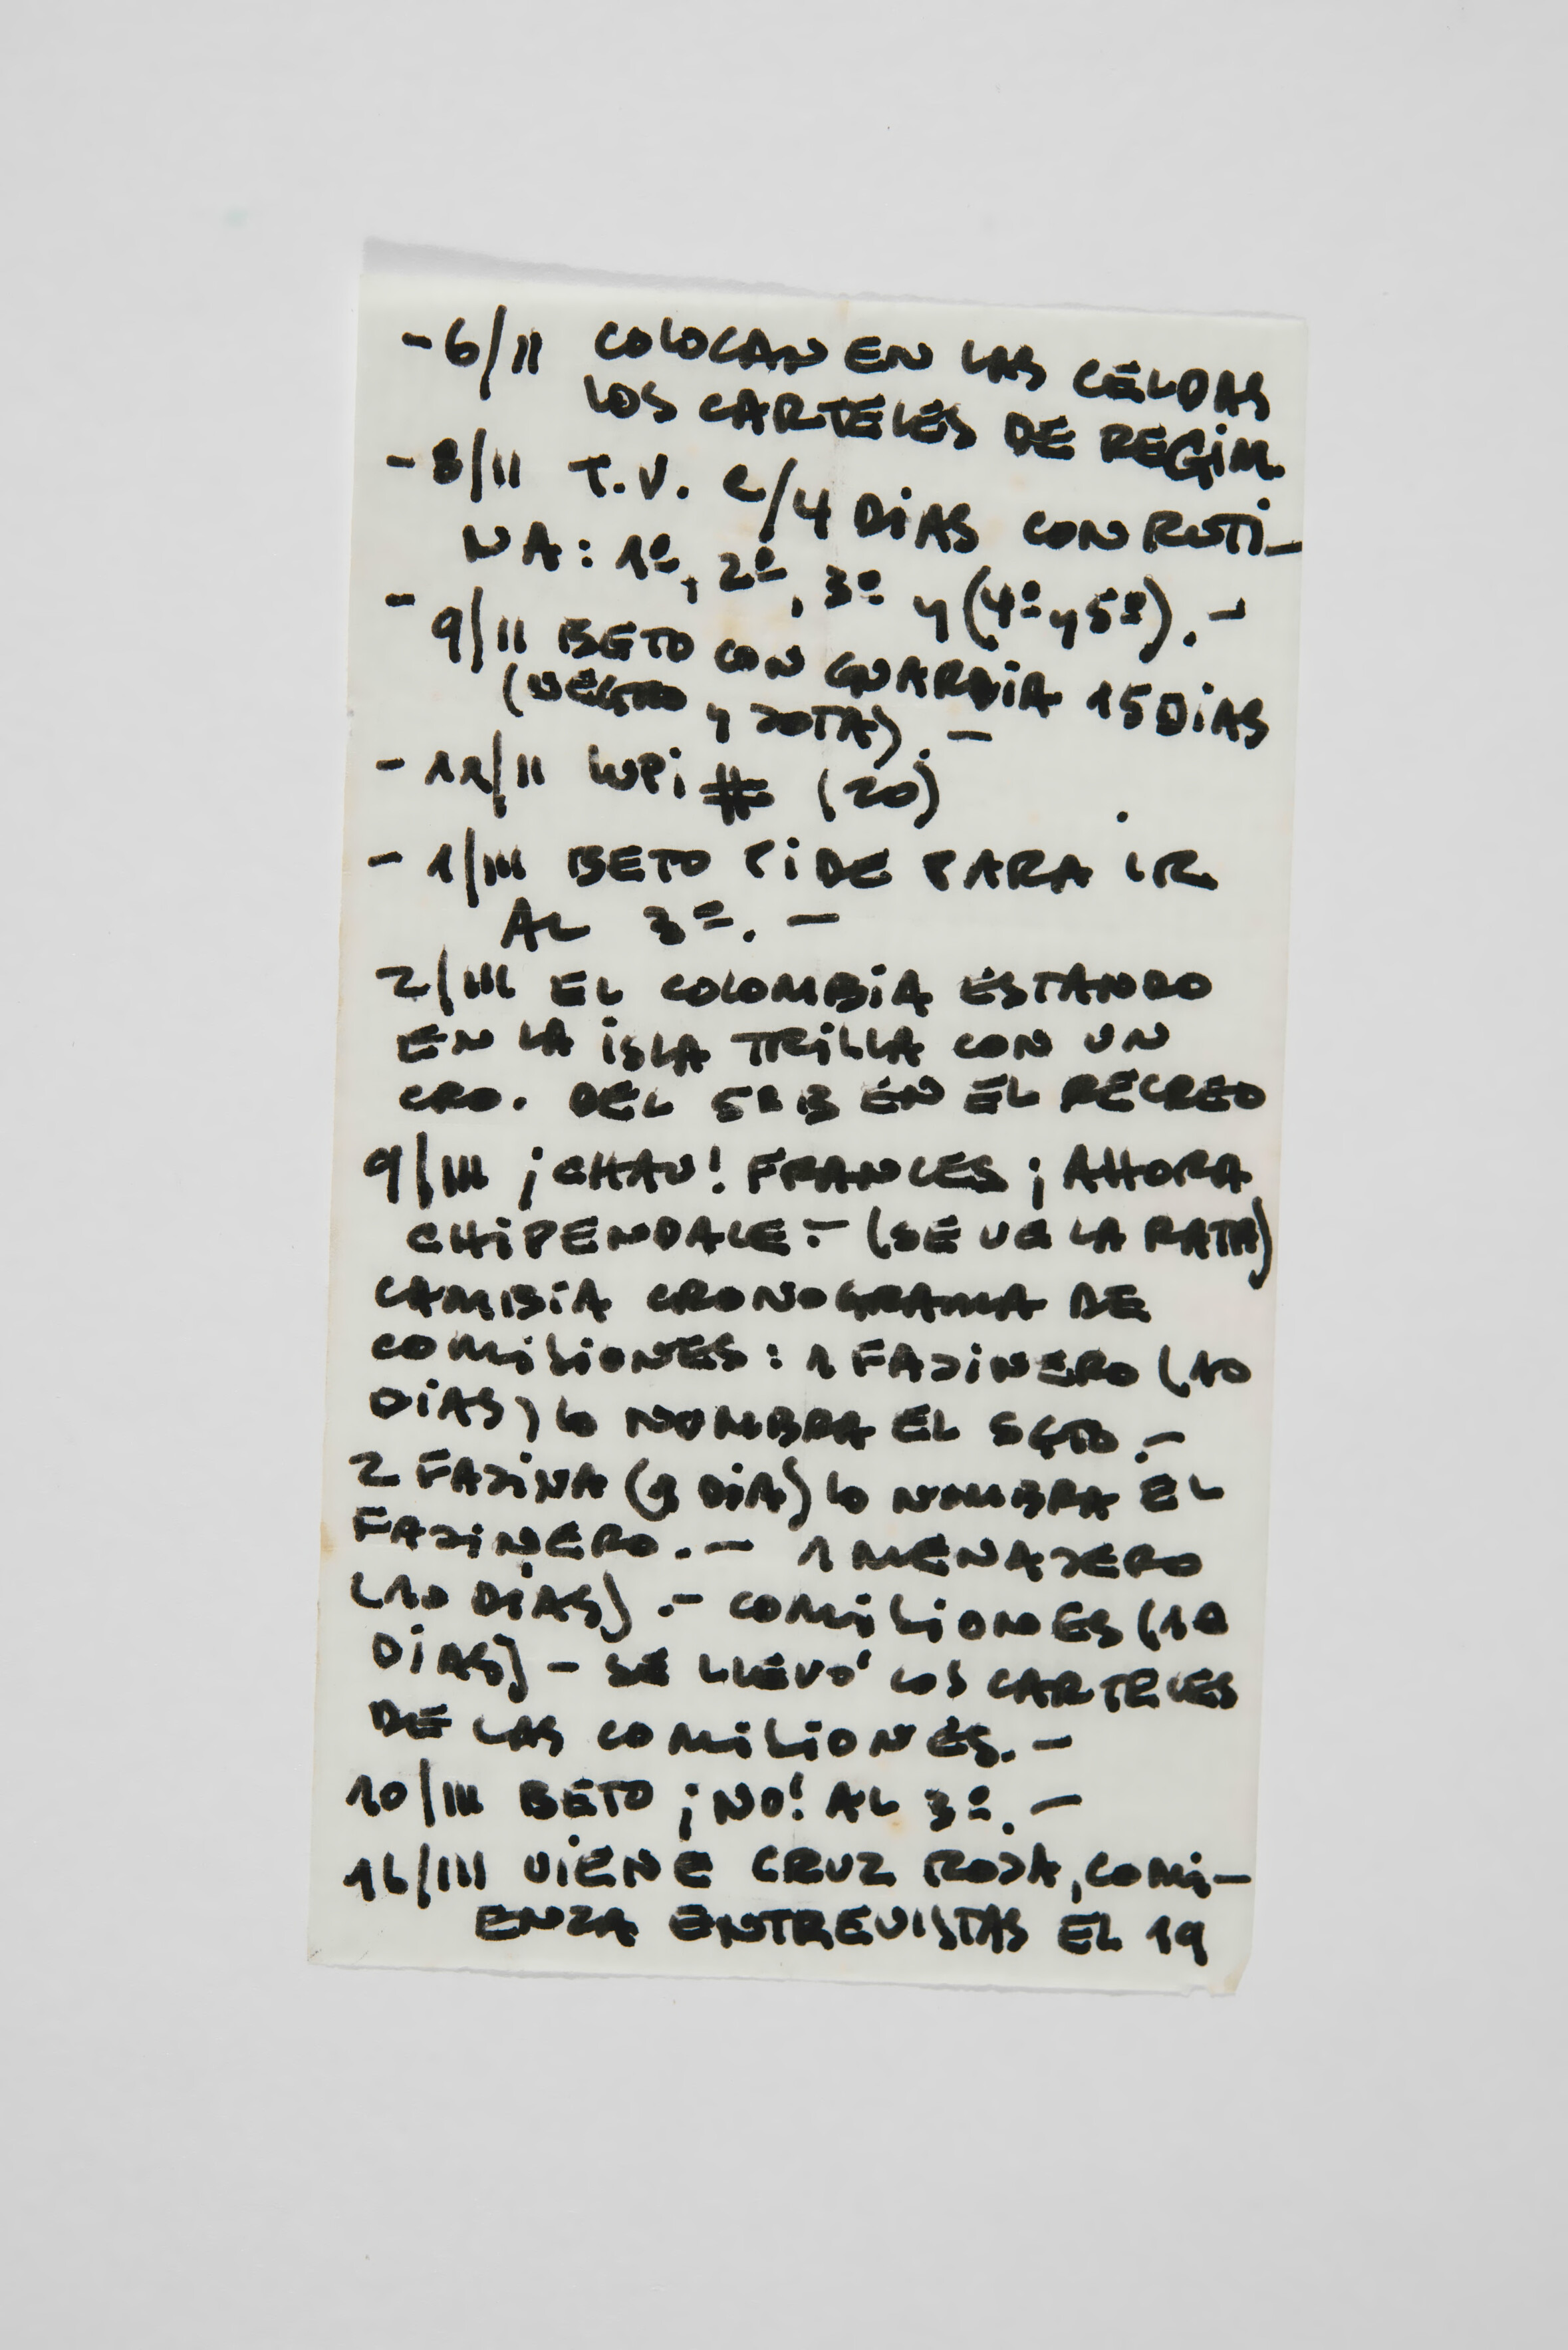 - 6/II COLOCAN EN LAS CELDAS
LOS CARTELES DE REGIM.
- 8/II T.V. C/4 DIAS CON RUTI-
NA: 1º, 2º, 3º y (4º y 5º).-
- 9/II BETO CON GUARDIA 15 DIAS
(NEGRO y JOTA).-
- 11/II LUPI # (20)
- 1/III BETO PIDE PARA IR
AL 3º.-
2/III EL COLOMBIA ESTANDO
EN LA ISLA TRILLA CON UN
CRO. DEL 5º B EN EL RECREO
9/III ¡CHAU! FRANCES ¡AHORA
CHIPENDALE.- (SE VE LA RATA)
CAMBIA CRONOGRAMA DE
COMISIONES: 1 FAJINERO (10
DIAS) LO NOMBRA EL SGTO.-
2 FAJINA ( DIA) LO NOMBRA EL
FAJINERO.- 1 MENAJERO
(10 DIAS).- COMISIONES (10
DIAS) - SE LLEVÓ LOS CARTELES
DE LAS COMISIONES.-
10/III BETO ¡NO! AL 3º.-
16/III VIENE CRUZ ROJA, COMI-
ENZA ENTREVISTAS EL 19